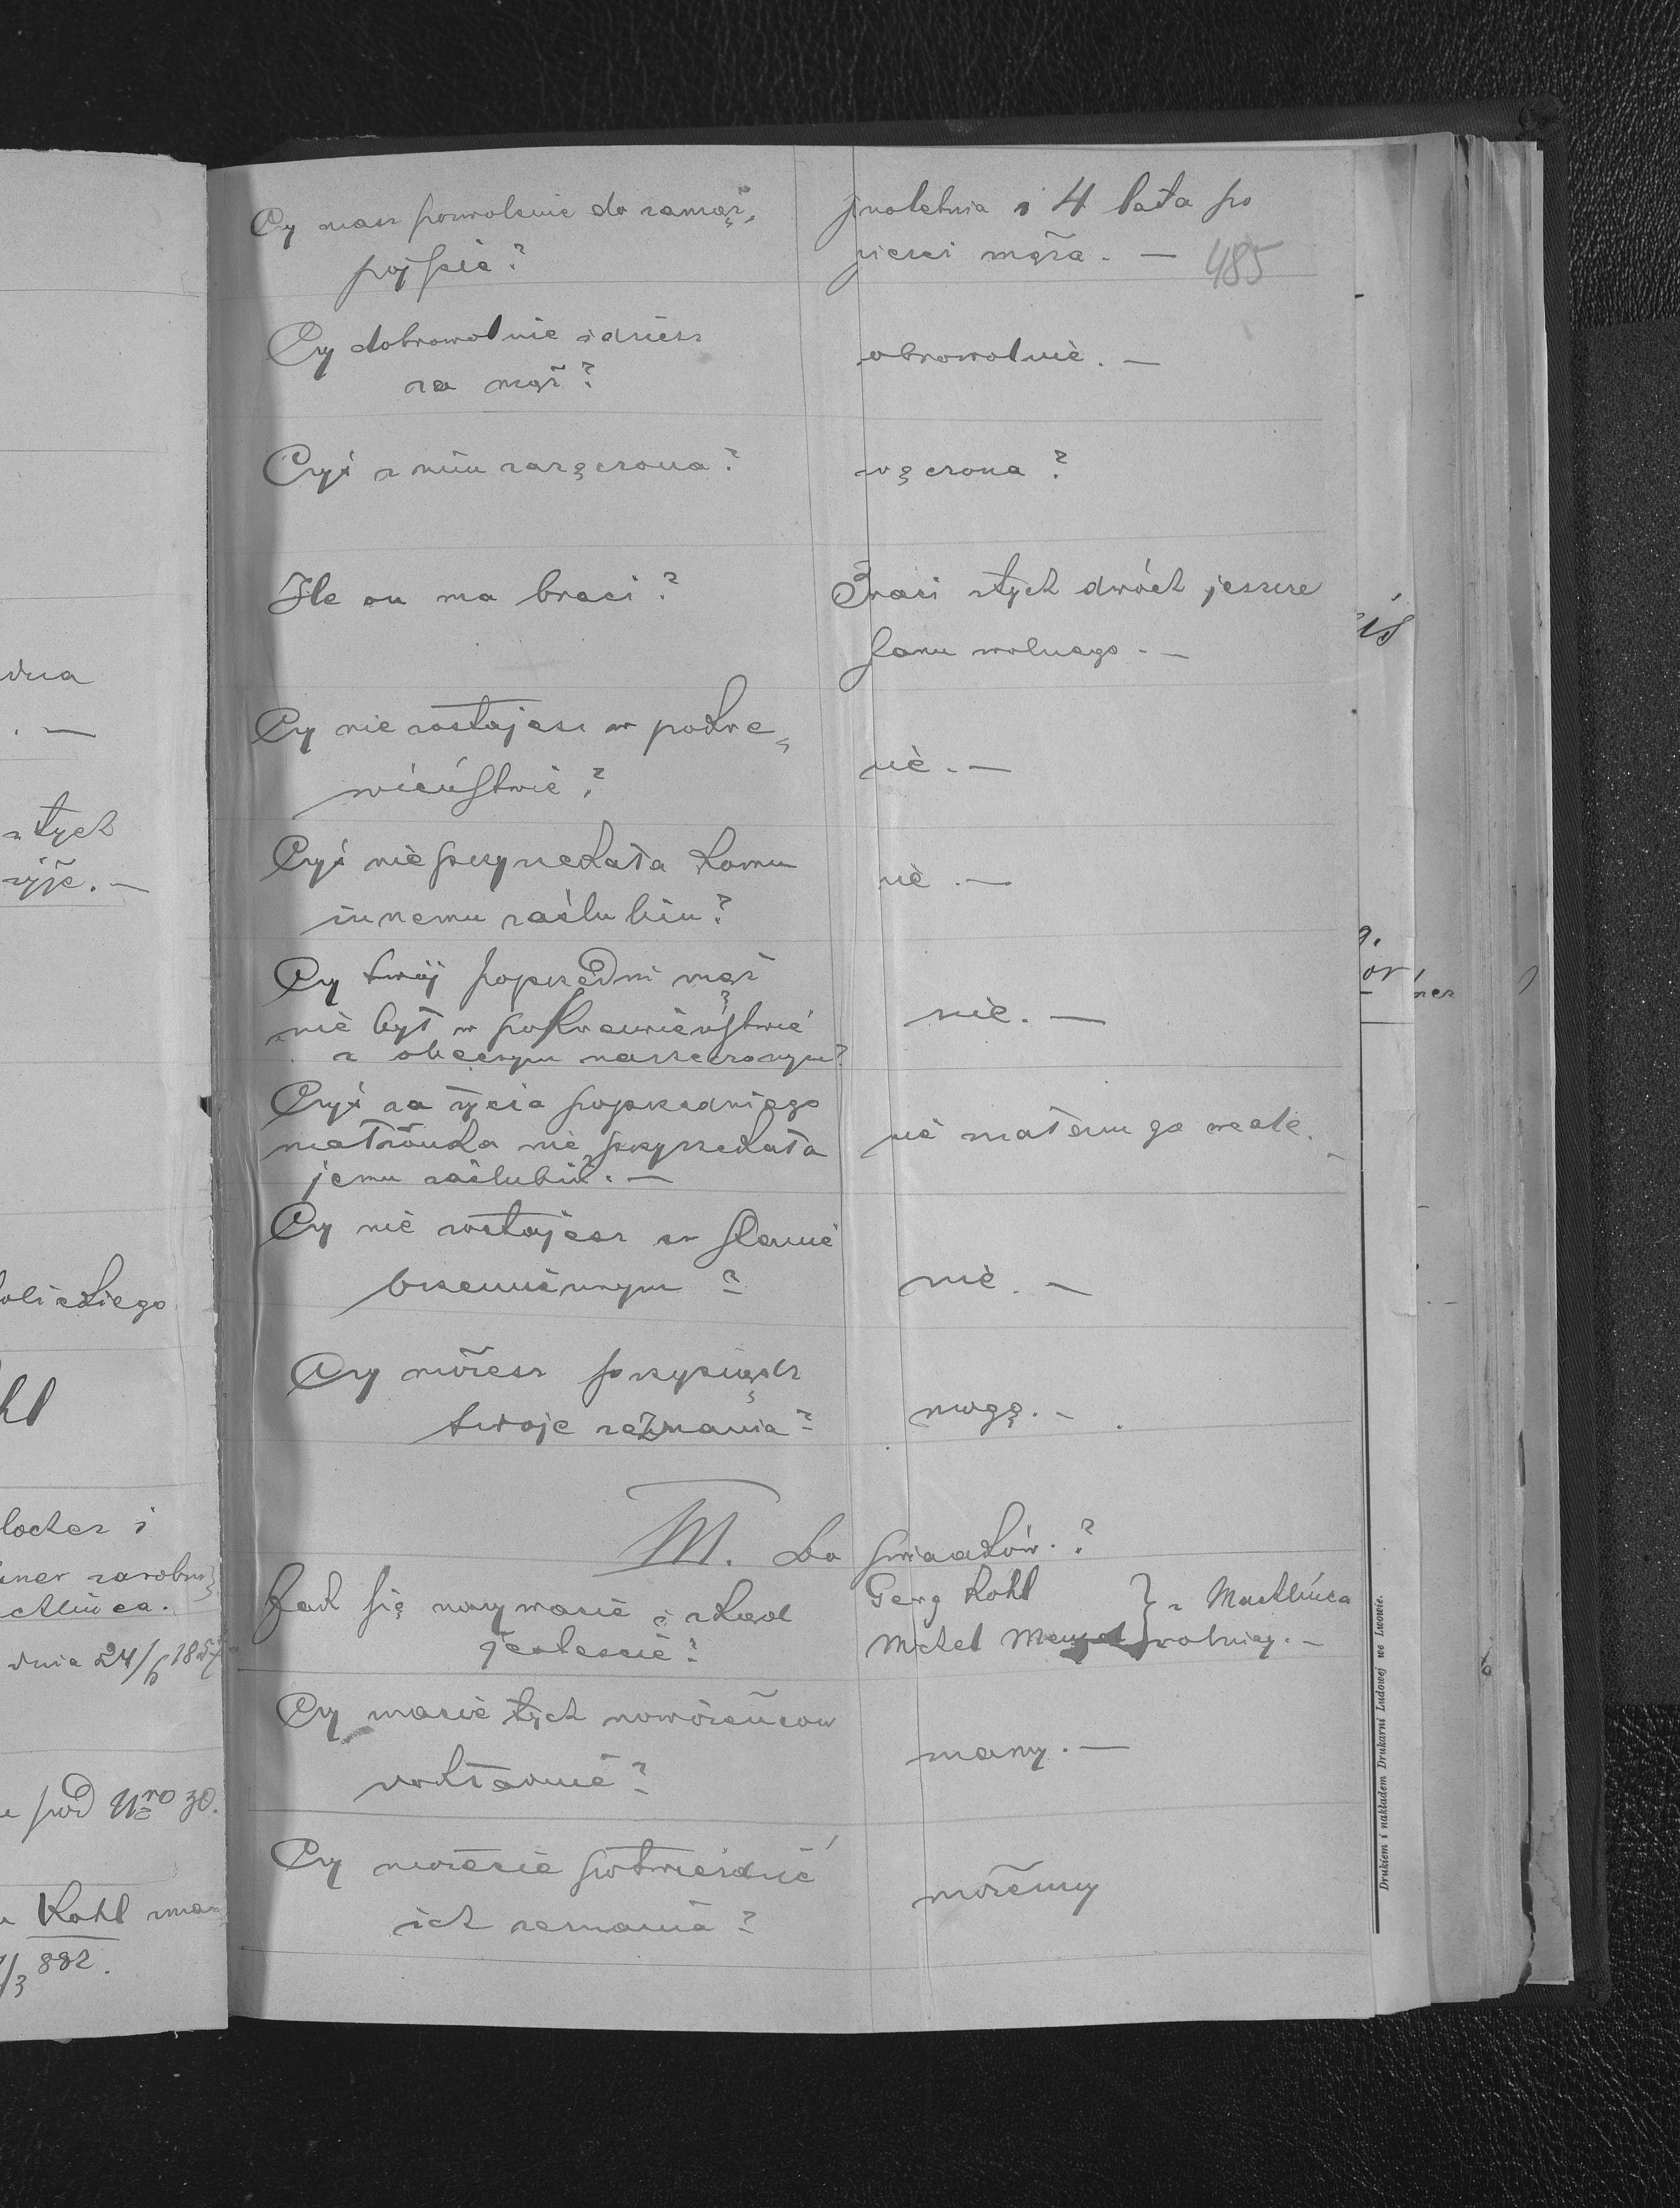 Czy masz pozwolenie do zamąż-
pójścia?
pełnoletnia i 4 lata po
śmierci męża. —
485
Czy dobrowolnie idziesz
za mąż?
dobrowolnie. —
Czyś z nim zaręczona?
zaręczona?
Ile on ma braci?
3 braci z tych dwóch jeszcze
stanu wolnego. —
Czy nie zostajesz w pokre-
wieństwie?
nie. —
Czyś nie przyrzekała komu
innemu zaślubin?
nie. —
Czy twój poprzedni mąż
nie był w pokrewieństwie
z obecnym narzeczonym?
nie. —
Czyś za życia poprzedniego
małżonka nie przyrzekała
jemu zaślubin. —
nie znałam go wcale. —
Czy nie zostajesz w stanie
brzemiennym?
nie. —
Czy możesz przysiądz
twoje zeznania?
mogę. —
III. Do świadków.?
Jak się nazywacie i zkąd
jesteście?
Gerg Kohl
Michel Menzel
} z Machlińca
rolnicy. —
Czy znacie tych nowożeńców
dokładnie?
znamy. —
Czy możecie potwierdzić
ich zeznania?
możemy
dna
z tych
żyje. —
olickiego
hl
locher i
iner zarobn
chlińca.
dnia 24/6 185
pod Nro 30.
Kohl zmar
/3 882.
Drukiem i nakładem Drukarni Ludowej we Lwowie.